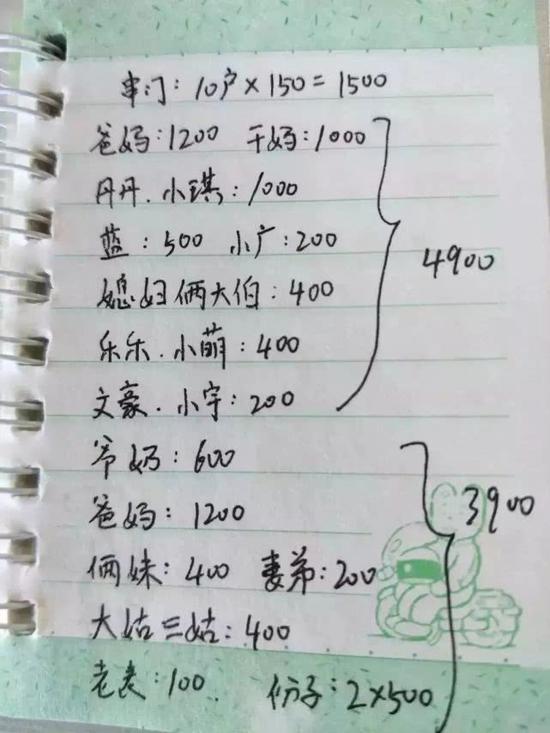 串门：10户×150=1500
爸妈：1200 干妈：1000
丹丹．小琪：1000
蓝：500 小广：200
4900
媳妇俩大伯：400
乐乐．小萌：400
文豪．小宇：200
爷奶：600
爸妈：1200
3900
俩妹：400 妻弟：200
大姑三姑：400
老表：100 份子：2×500